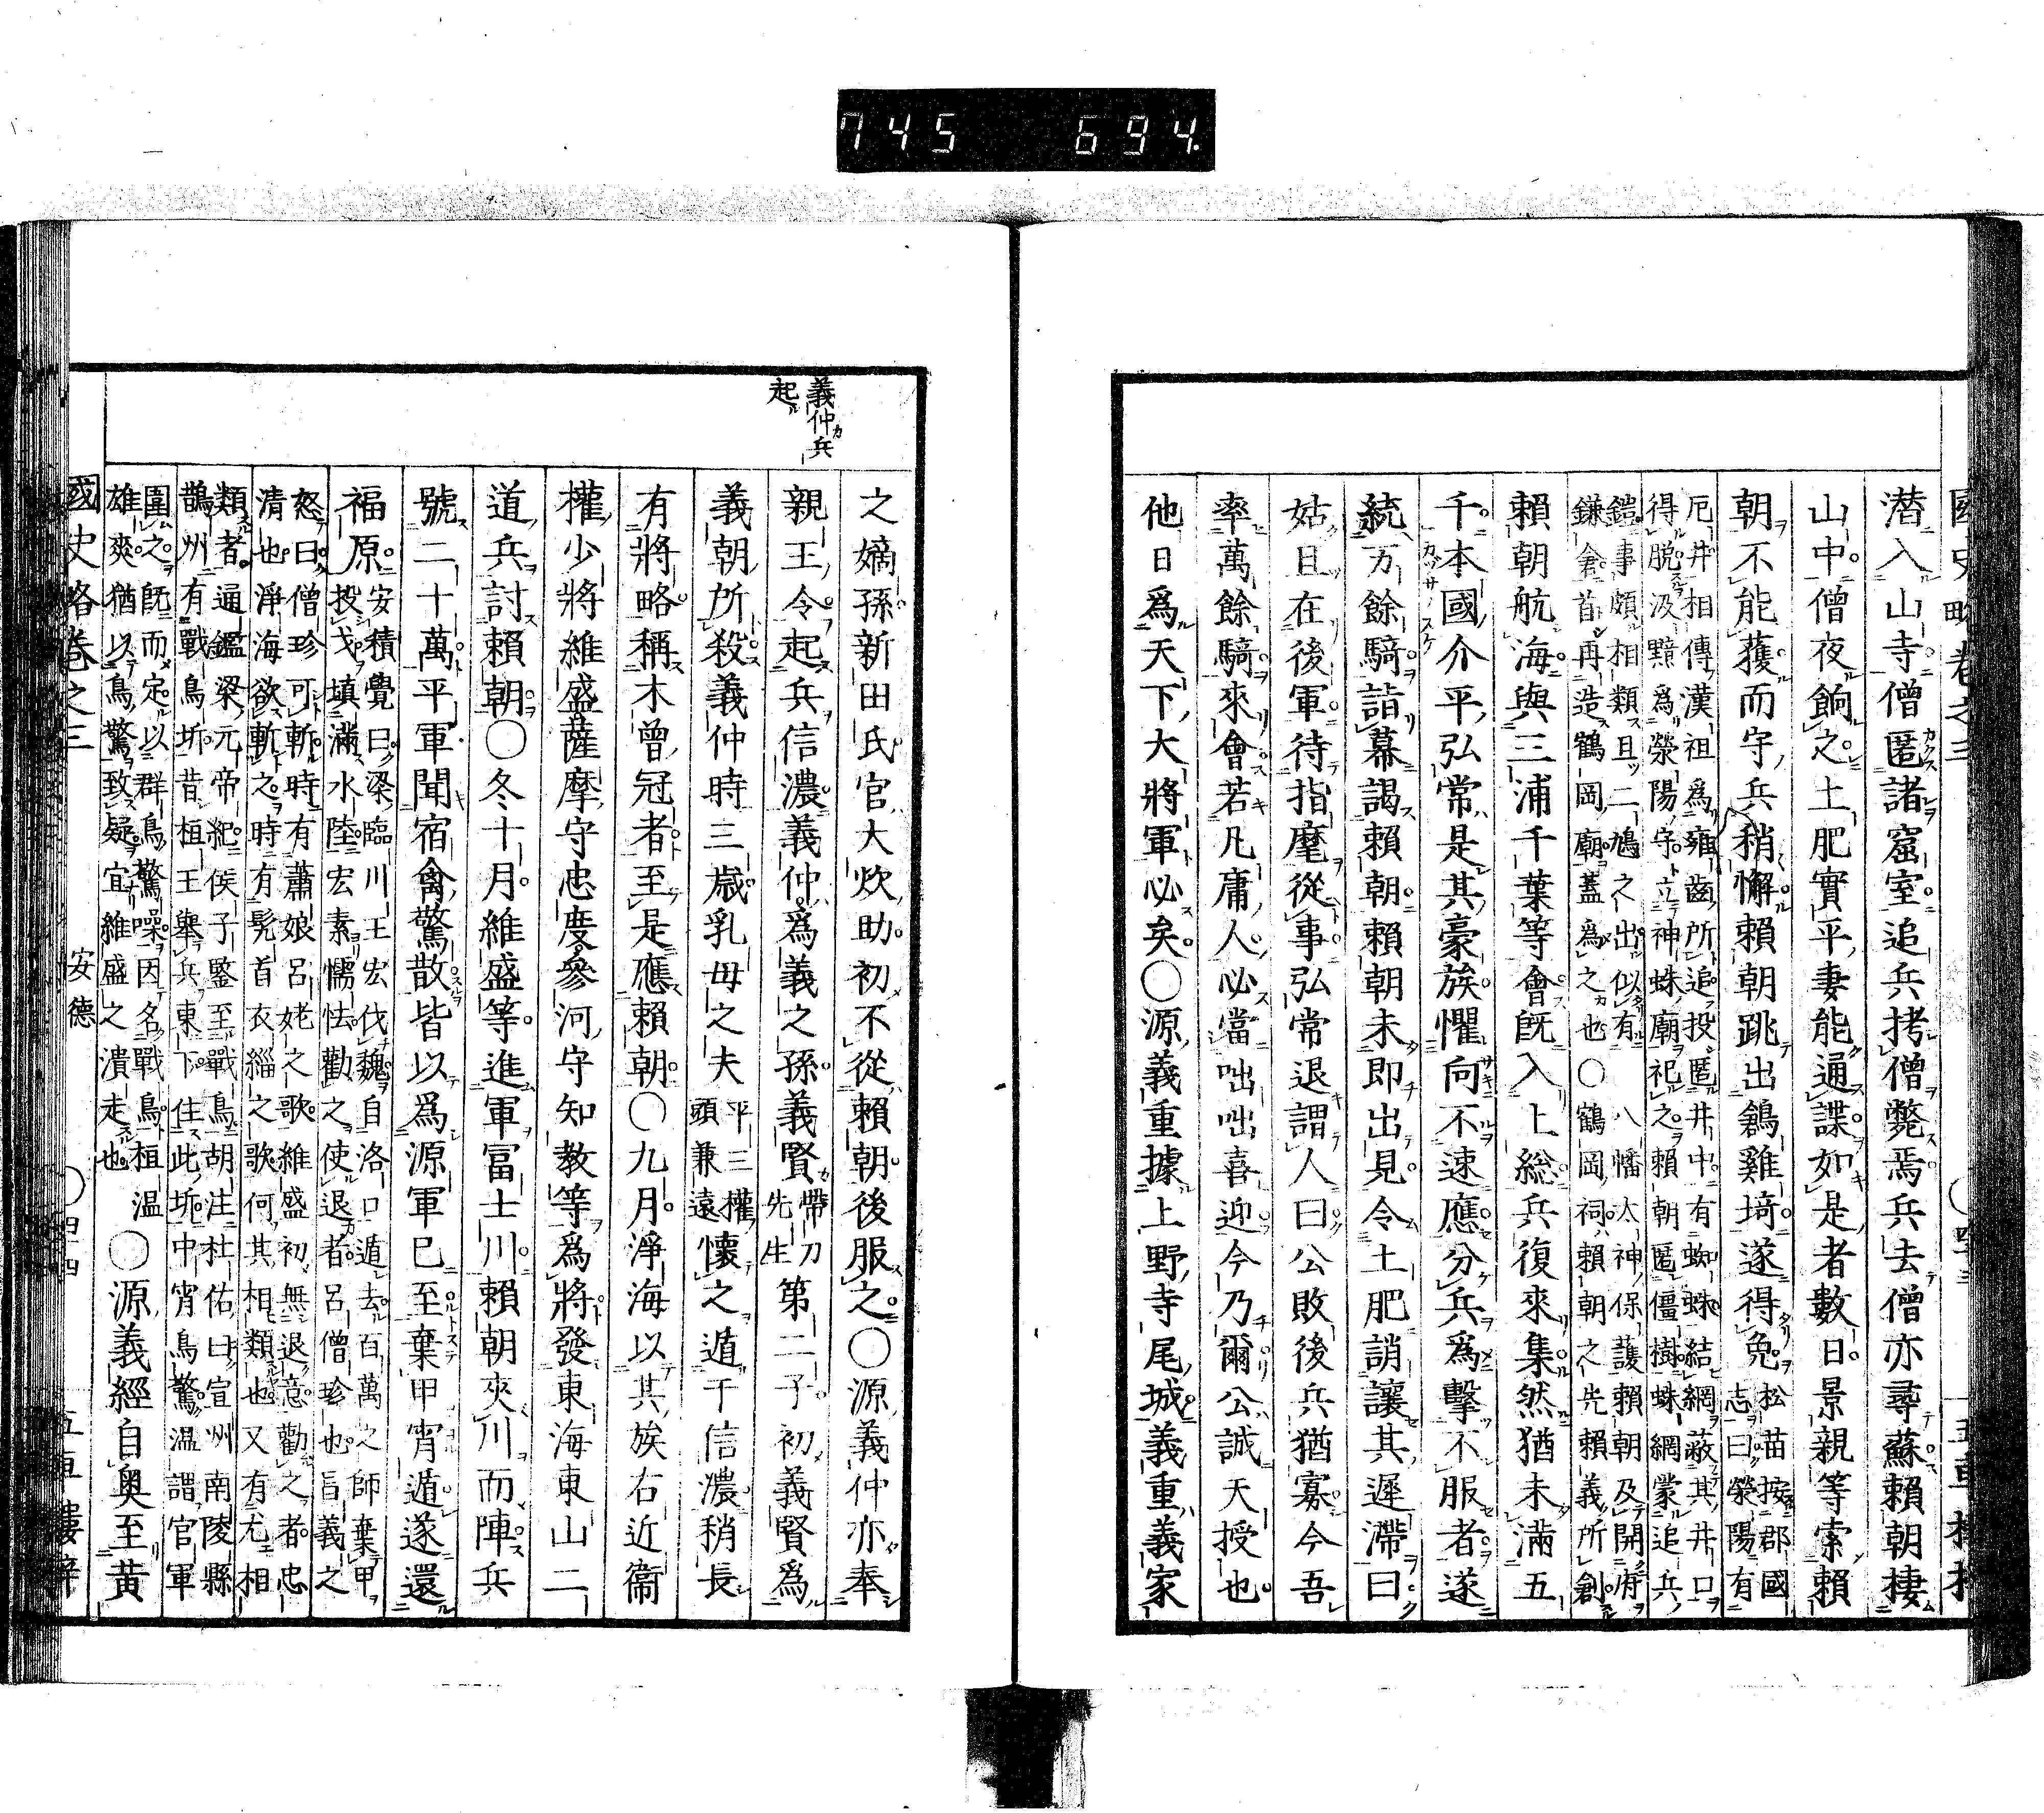 745 694.
國史略卷之三
潜入山寺僧匿諸窟室追兵拷僧斃焉兵去僧亦尋蘇賴朝棲
山中僧夜餉之土肥實平妻能通諜如是者數日景親等索賴
朝不能獲而守兵稍懈賴朝跳出鶴雞埼遂得免
松苗按郡國
志曰滎陽有
厄井相傳漢祖爲雍齒所追投匿井中有蜘蛛結網蔽其井口
得脱汲黯爲滎陽守立神蛛廟祀之賴朝匿僵樹蛛網蒙追兵
鎧事頗相類且二鳩之出似有八幡大神保護賴朝及開府
鎌倉首再造鶴岡廟蓋爲之也○鶴岡祠賴朝之先賴義所創
賴朝航海與三浦千葉等會既入上総兵復來集然猶未滿五
千本國介平弘常是其豪族懼向不速應分兵爲擊不服者遂
統万餘騎詣幕謁賴朝賴朝未即出見令土肥誚讓其遲滯曰
姑且在後軍待指麾從事弘常退謂人曰公敗後兵猶寡今吾
率萬餘騎來會若凡庸人必當咄咄喜迎今乃爾公誠天授也
他日爲天下大將軍必矣○源義重據上野寺尾城義重義家
義仲兵
起
之嫡孫新田氏官大炊助初不從賴朝後服之○源義仲亦奉
親王令起兵信濃義仲爲義之孫義賢
帶刀
先生
第二子初義賢爲
義朝所殺義仲時三歳乳母之夫
平三權
頭兼遠
懷之遁于信濃稍長
有將略稱木曾冠者至是應賴朝○九月淨海以其族右近衞
權少將維盛薩摩守忠度參河守知敎等爲將發東海東山二
道兵討賴朝○冬十月維盛等進軍冨士川賴朝夾川而陣兵
號二十萬平軍聞宿禽驚散皆以爲源軍已至棄甲宵遁遂還
福原
安積覺曰梁臨川王宏伐魏自洛口遁去百萬之師棄甲
投戈填滿水陸宏素懦怯勸之使退者呂僧珍也昌義之
怒曰僧珍可斬時有蕭娘呂姥之歌維盛初無退意勸之者忠
清也淨海欲斬之時有髡首衣緇之歌何其相類也又有尤相
類者通鑑梁元帝紀侯子鑒至戰鳥胡注杜佑曰宣州南陵縣
鵲州有戰鳥圻昔桓王舉兵東下住此圻中宵鳥驚溫謂官軍
圍之既而定以群鳥驚噪因名戰鳥桓溫
雄爽猶以鳥驚致疑宜維盛之潰走也
○源義經自奥至黄
國史略卷之三 安德 ○四四